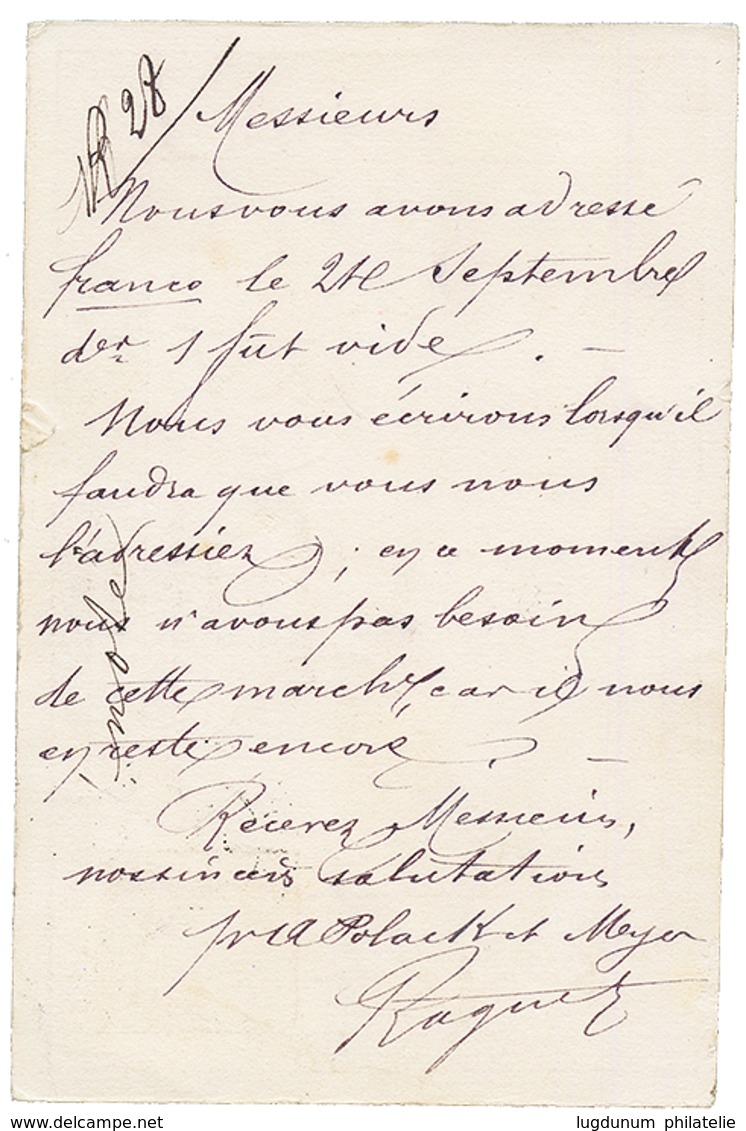 28
Messieurs
Nous vous avons adressé
franco le 24 Septembre
der 1 fût vide. —
Nous vous écrirons lorsqu'il
faudra que vous nous
l'adressiez ; en ce moment
nous n'avons pas besoin
de cette march, car il nous
en reste encore. —
Recevez Messieurs,
nos sincères salutations
pr A Polack et Meyer
Raguet
delcampe.net
lugdunum philatelie